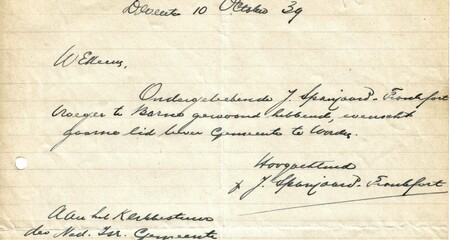 Deventer 10 October 39
WelEerw.,
Ondergetekende J. Spanjaard-Frankfort
vroeger te Borne gewoond hebbend, wenscht
gaarne lid Uwer Gemeente te worden.
Hoogachtend
J. Spanjaard-Frankfort
Aan het Kerkbestuur
des Ned. Isr. Gemeente